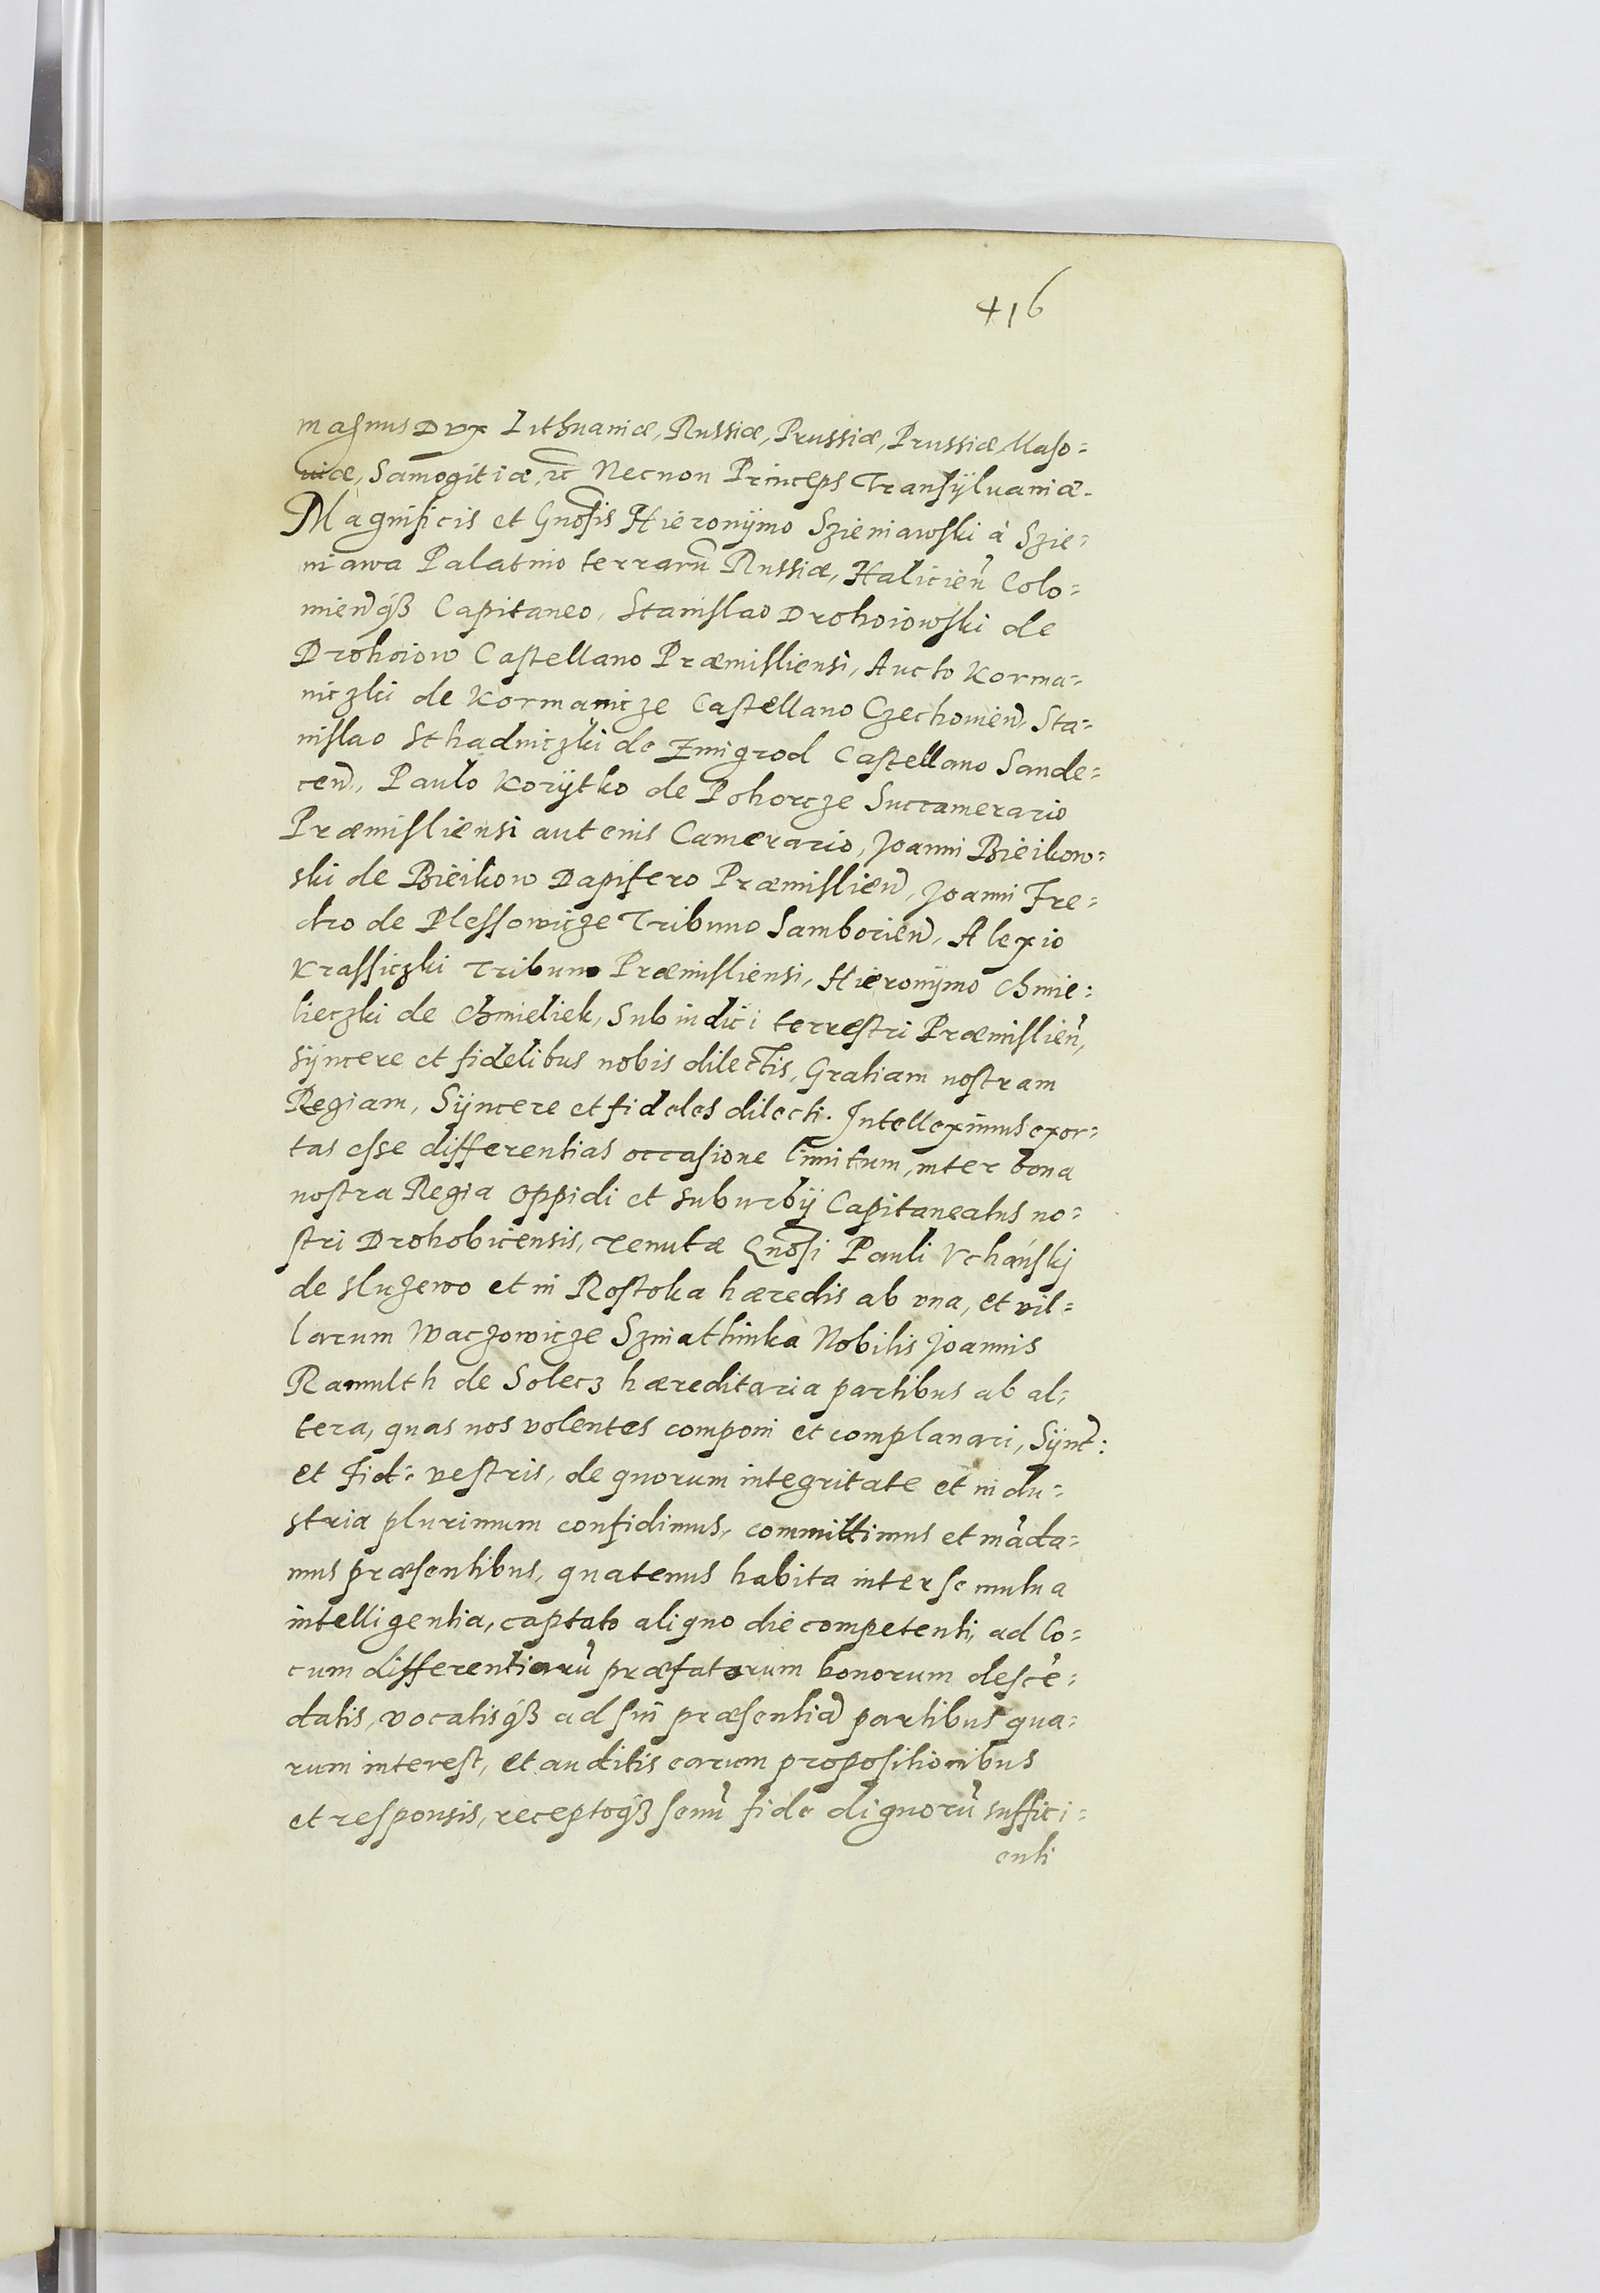 416
magnus Dux Lithuaniæ, Russiæ, Prussiæ, Prussiæ, Maso=
uiæ, Samogitiæ, ꝛc̃ Necnon Princeps Transÿluaniæ.
Magnificis et Gnosis̃ Hieronÿmo Szieniawski à Szie=
niawa Palatino terrarũ Russiæ, Halicien̄ Colo=
mien̄qꝫ Capitaneo, Stanislao Drohoiowski de
Drohoiow Castellano Præmisliensi, Aucto Korma=
niczki de Kormanicze Castellano Czechouien̄, Sta=
nislao Sthadniczki de Zmigrod Castellano Sande=
cen̄, Paulo Korÿtko de Pohorcze Succamerario
Præmisliensi autenis Camerario, Joanni Bieikow=
ski de Bieikow Dapifero Præmislien̄, Joanni Fre=
dro de Plessowicze Tribuno Samborien̄, Alexio
Krassiczki Tribuno Præmisliensi, Hieronÿmo Chmie=
lieczki de Chmieliek, Subiudici terrestri Præmislien̄,
sÿncere et fidelibus nobis dilectis, Gratiam nostram
Regiam, Sÿncere et fideles dilecti. Intelleximus exor=
tas esse differentias occasione limitum, inter bona
nostra Regia Oppidi et suburbij Capitaneatus no=
stri Drohobicensis, Tenutæ Gnosĩ Pauli Vchański
de Sluzewo et in Rostoka hæredis ab vna, et vil=
larum Waczowicze Szniathinka Nobilis Joannis
Ramulth de Solecz hæreditaria partibus ab al=
tera, quas nos volentes componi et complanari, Sÿnc̃:
et Fid: vestris, de quorum integritate et indu=
stria plurimum confidimus, committimus et mãda=
mus præsentibus, quatenus habita inter se mutua
intelligentia, captato aliquo die competenti, ad lo=
cum differentiarũ præfatorum bonorum descẽ=
datis, vocatisqꝫ ad sui præsentiã partibus qua=
rum interest, et auditis earum propositionibus
et responsis, receptoqꝫ senũ fide dignorũ suffici=
enti